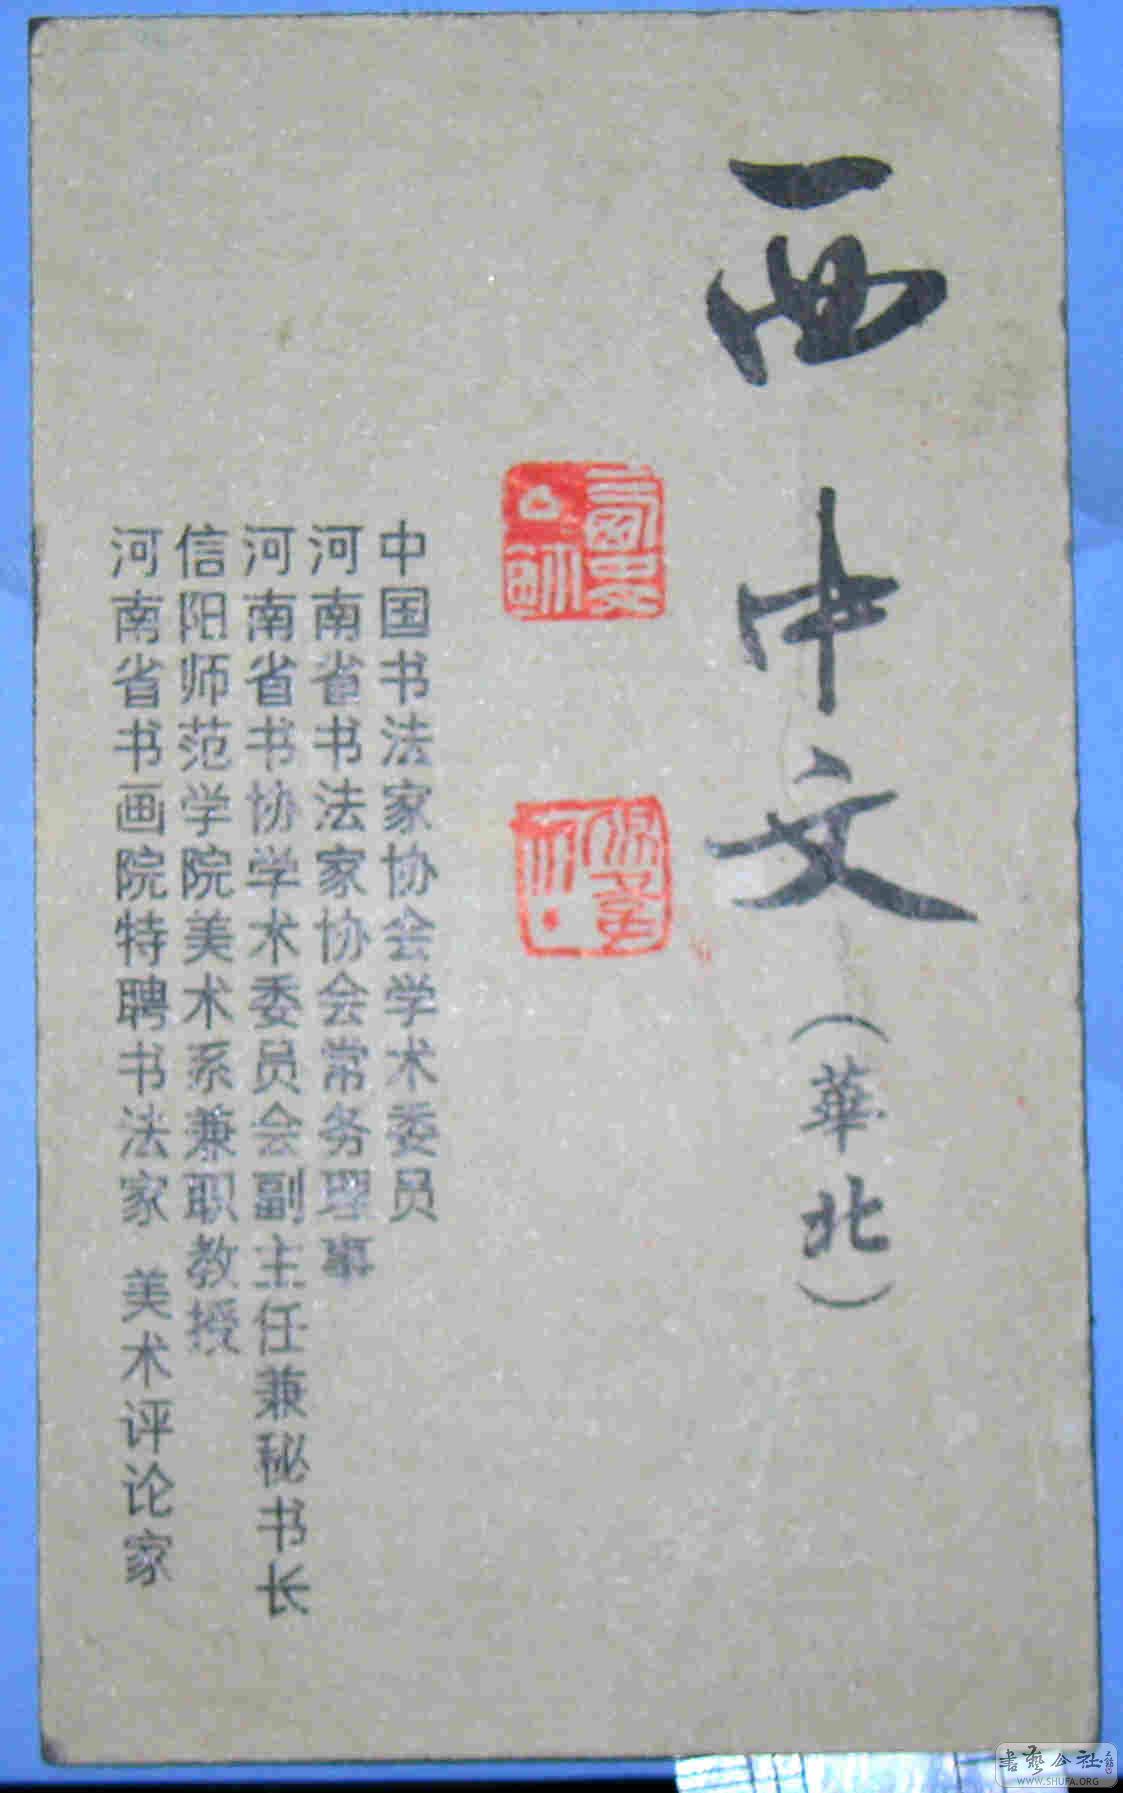 西中文（華北）
中国书法家协会学术委员
河南省书法家协会常务理事
河南省书协学术委员会副主任兼秘书长
信阳师范学院美术系兼职教授
河南省书画院特聘书法家 美术评论家
書藝公社
WWW.SHUFA.ORG